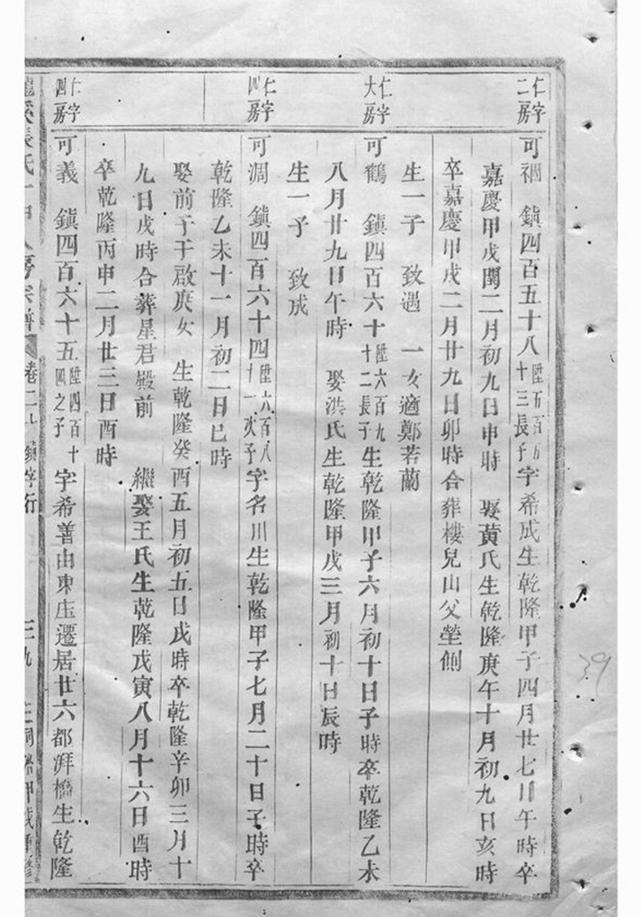 仁字二房
可裍 鎮四百五十八陞五百五十三長子字希成生乾隆甲子四月廿七日午時卒
嘉慶甲戌閏二月初九日申時 娶黃氏生乾隆庚午十月初九日亥時
卒嘉慶甲戌二月廿九日卯時合葬樓兒山父塋側
生一子 致遇 一女適鄭若蘭
仁字大房
可鶴 鎮四百六十陞六百九十二長子生乾隆甲子六月初十日子時卒乾隆乙未
八月廿九日午時 娶洪氏生乾隆甲戌三月初十日辰時
生一子 致成
仁字四房
可澗 鎮四百六十四陞六百八十一次子字名川生乾隆甲子七月二十日子時卒
乾隆乙未十一月初二日巳時
娶前于于啟庚女 生乾隆癸酉五月初五日戌時卒乾隆辛卯三月十
九日戌時合葬星君殿前 繼娶王氏生乾隆戊寅八月十六日酉時
卒乾隆丙申二月廿三日酉時
仁字四房
可義 鎮四百六十五陞四百十四之子字希善由東庄遷居廿六都湃橋生乾隆
張氏 房宗譜 卷二十 鎮字行 三九
39